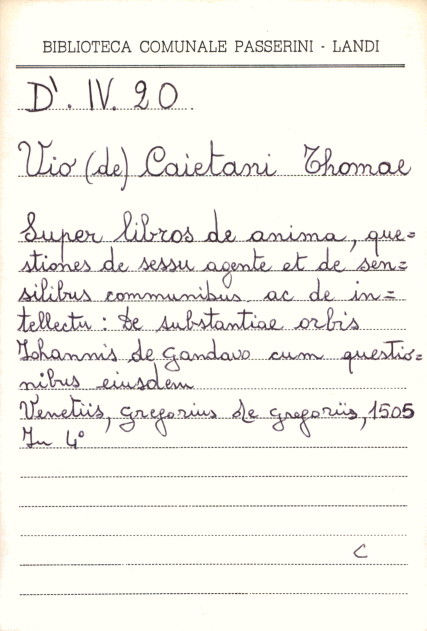 BIBLIOTECA COMUNALE PASSERINI - LANDI
D'. IV. 20.
Vio (de) Caietani Thomae
Super libros de anima, que=
stiones de sessu agente et de sen=
silibus communibus ac de in=
tellectu : De substantiae orbis
Iohannis de Gandavo cum questio=
nibus eiusdem
Venetiis, Gregorius de Gregoriis, 1505
In 4°
C